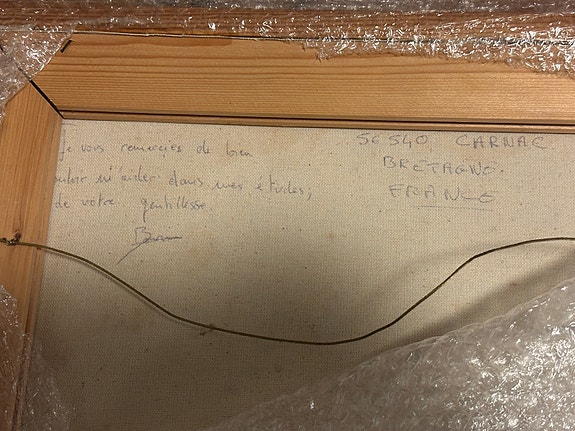 je vous remercies de bien
m'aider dans mes études;
de votre gentillesse.
56540, CARNAC
BRETAGNE.
FRANCE